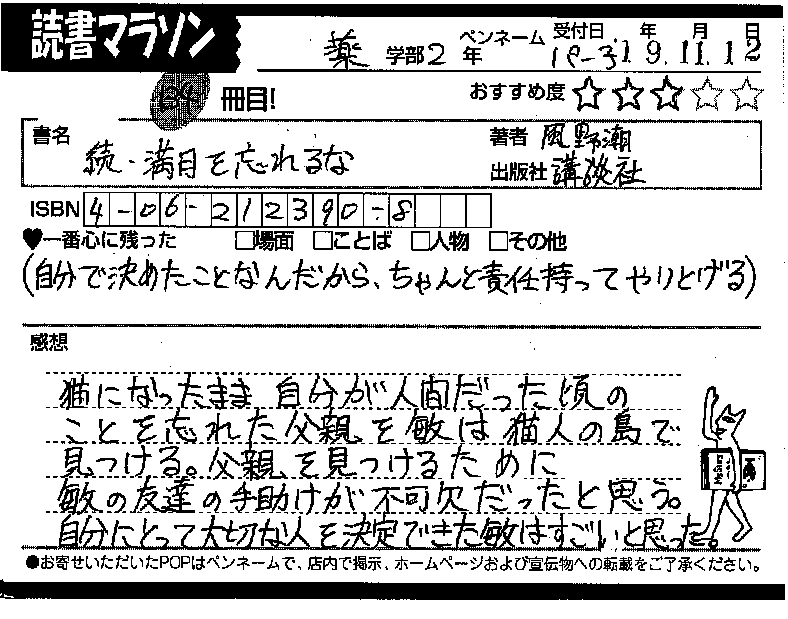 読書マラソン
薬 学部 2 年
ペンネーム
受付日 年 月 日
19.11.12
冊目!
おすすめ度 ☆☆☆☆☆
書名
続・満月を忘れるな
著者 風野潮
出版社 講談社
ISBN 4-06-212390-8
♥一番心に残った □場面 □ことば □人物 □その他
(自分で決めたことなんだから、ちゃんと責任持ってやりとげる)
感想
猫になったまま 自分が人間だった頃の
ことを忘れた父親を敏は猫人の島で
見つける。父親を見つけるために
敏の友達の手助けが不可欠だったと思う。
自分にとって大切な人を決定できた敏はすごいと思った。
●お寄せいただいたPOPはペンネームで、店内で掲示、ホームページおよび宣伝物への転載をご了承ください。